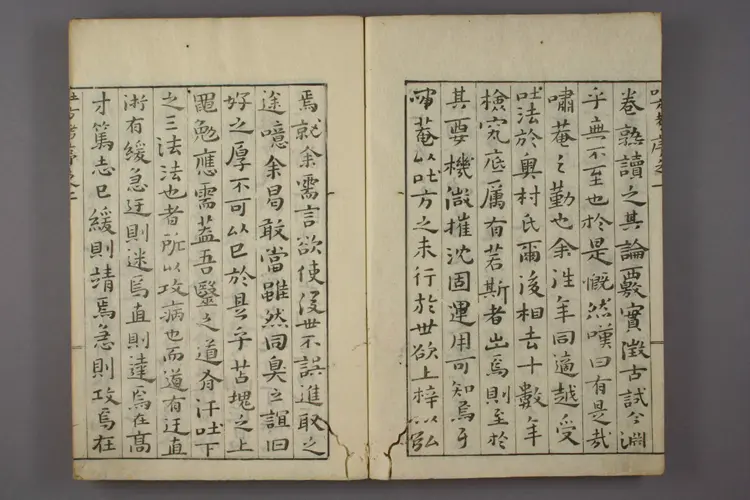 卷熟讀之其論覈實徵古試今淵
乎無不至也於是慨然嘆曰有是哉
嘯菴之勤也余往年同適越受
吐法於奧村氏爾後相去十數年
檢究底厲有若斯者出焉則至於
其要機微摧沈固運用可知焉于
嘯菴以吐方之未行於世欲上梓以弘
焉就余需言欲使後世不誤進取之
途噫余曷敢當雖然同臭之誼旧
好之厚不可以已於是乎苫塊之上
黽勉應需蓋吾毉之道有汗吐下
之三法法也者所以攻病也而道有迂直
術有緩急迂則迷焉直則達焉在高
才篤志已緩則請焉急則攻焉在